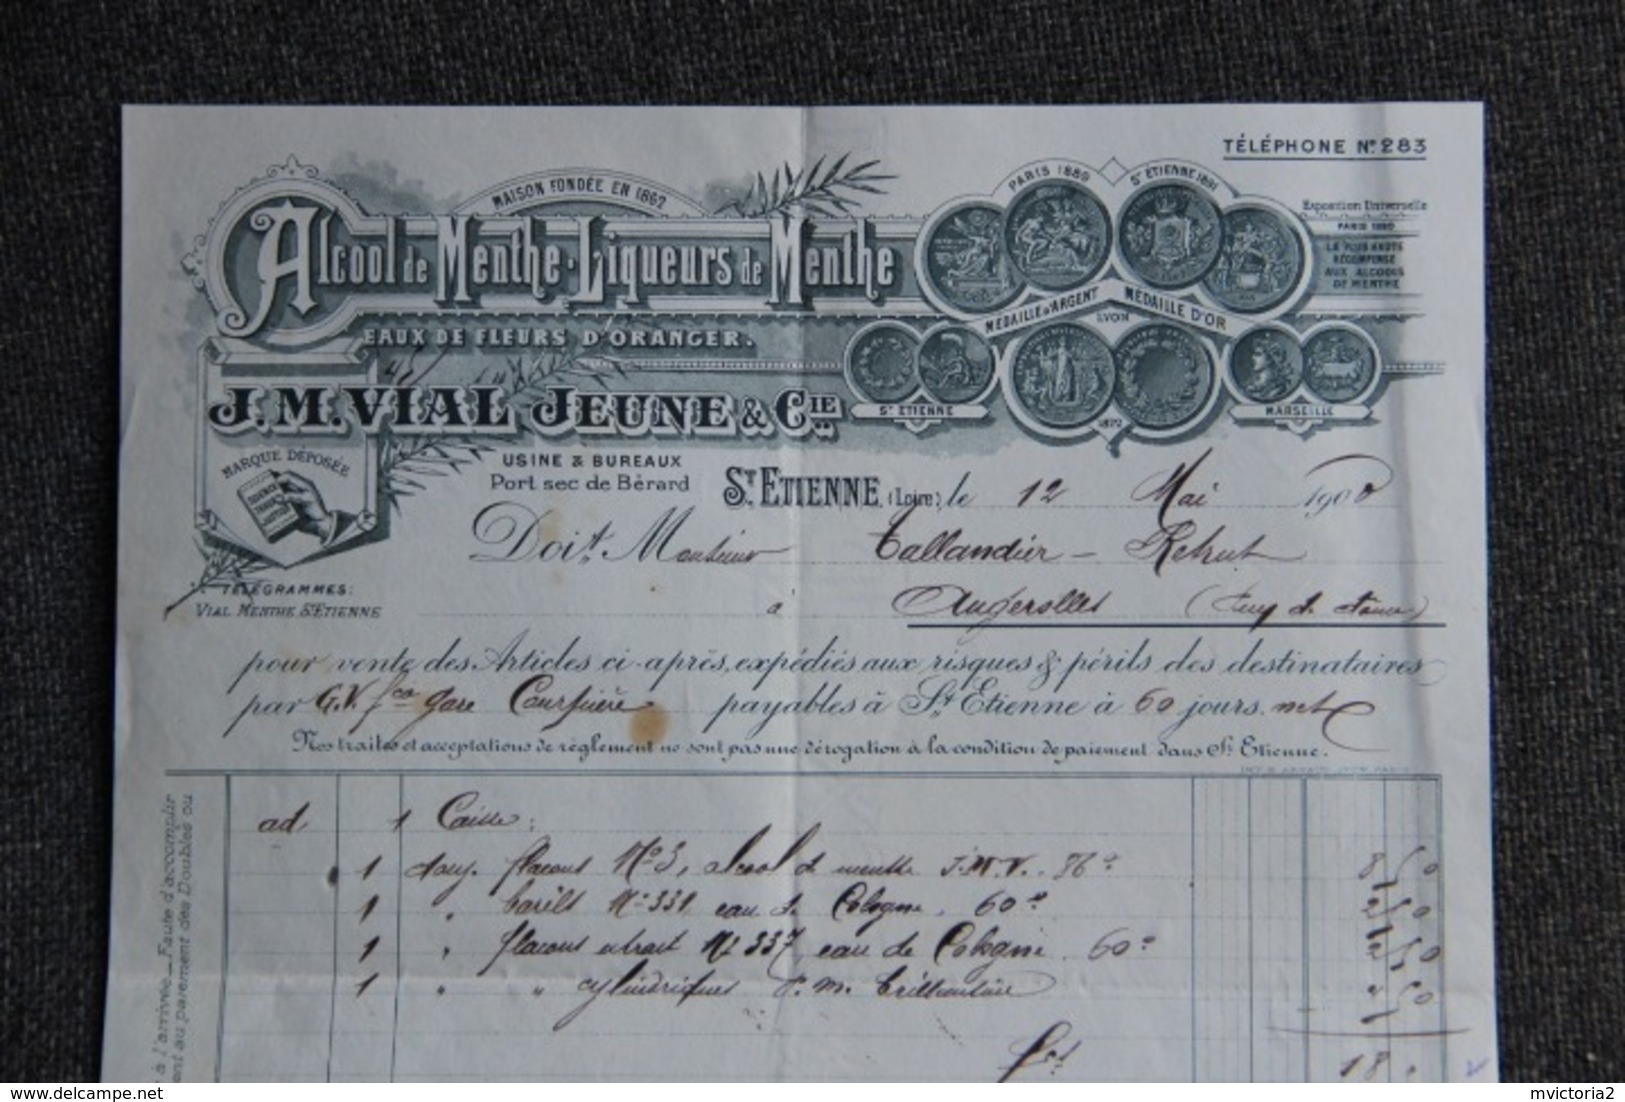 TÉLÉPHONE Nº 283
MAISON FONDÉE EN 1862
Alcool de Menthe - Liqueurs de Menthe
EAUX DE FLEURS D'ORANGER.
J. M. VIAL JEUNE & CIE
PARIS 1889
ST ETIENNE 1891
MÉDAILLE D'ARGENT
MÉDAILLE D'OR
LYON
ST ETIENNE
1872
MARSEILLE
Exposition Universelle
PARIS 1889
LA PLUS HAUTE
RÉCOMPENSE
AUX ALCOOLS
DE MENTHE
MARQUE DÉPOSÉE
USINE & BUREAUX
Port sec de Bérard
ST ETIENNE (Loire), le 12 Mai 1900
Doit Monsieur Tallandier -
TÉLÉGRAMMES:
VIAL MENTHE ST ETIENNE
à Augerolles (Puy de Dôme)
pour vente des Articles ci-après, expédiés aux risques & périls des destinataires
par G.V. fco gare Courpière payables à St Etienne à 60 jours. net
Nos traites et acceptations de règlement ne sont pas une dérogation à la condition de paiement dans St Etienne.
ad 1 Caisse:
1 douz. flacons No 3, alcool de menthe J.M.V.
1 " barils No 331, eau de Cologne, 60º
1 " flacons extrait No 337, eau de Cologne. 60º
1 " " cylindriques brillantine
18
à l'arrivée_Faute d'accomplir
ent au paiement des Doubles ou
mvictoria2